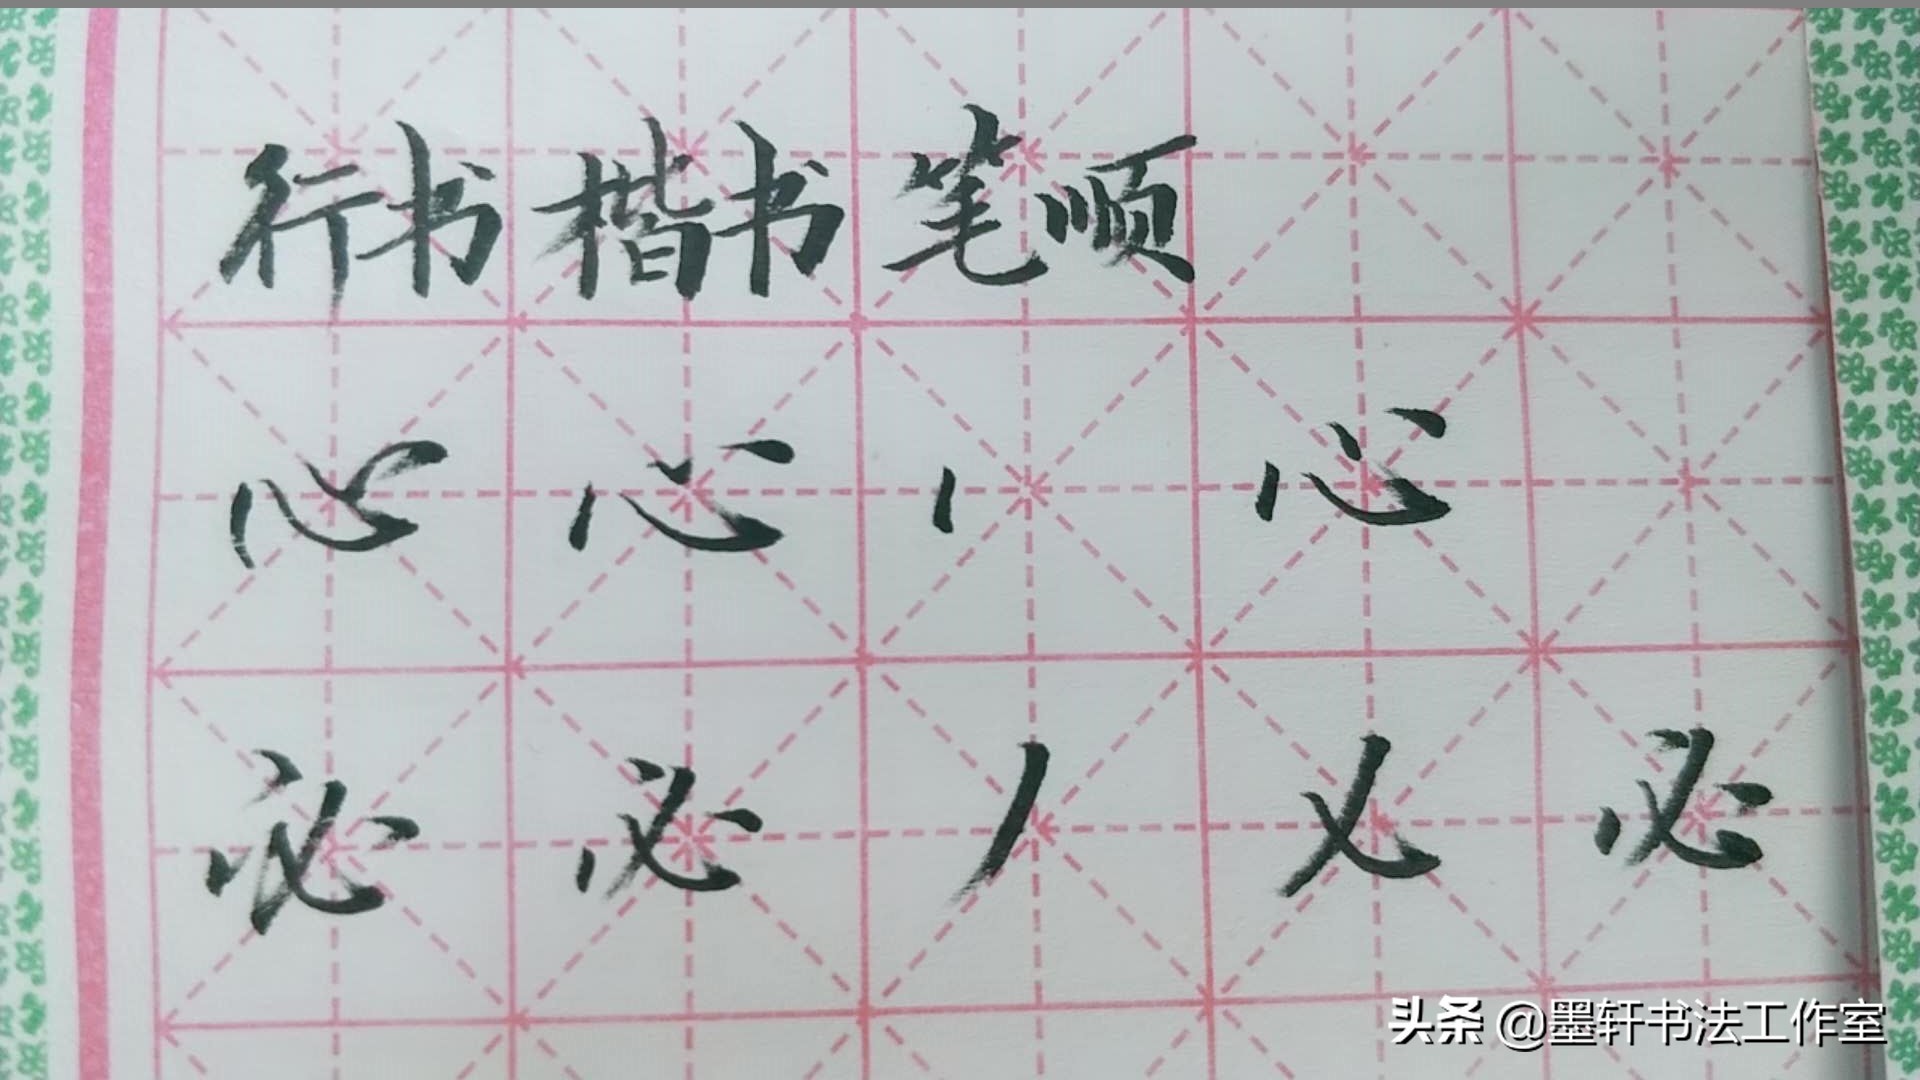 行书 楷书 笔顺
心 心 丨 心
必 必 丿 必
头条 @墨轩书法工作室